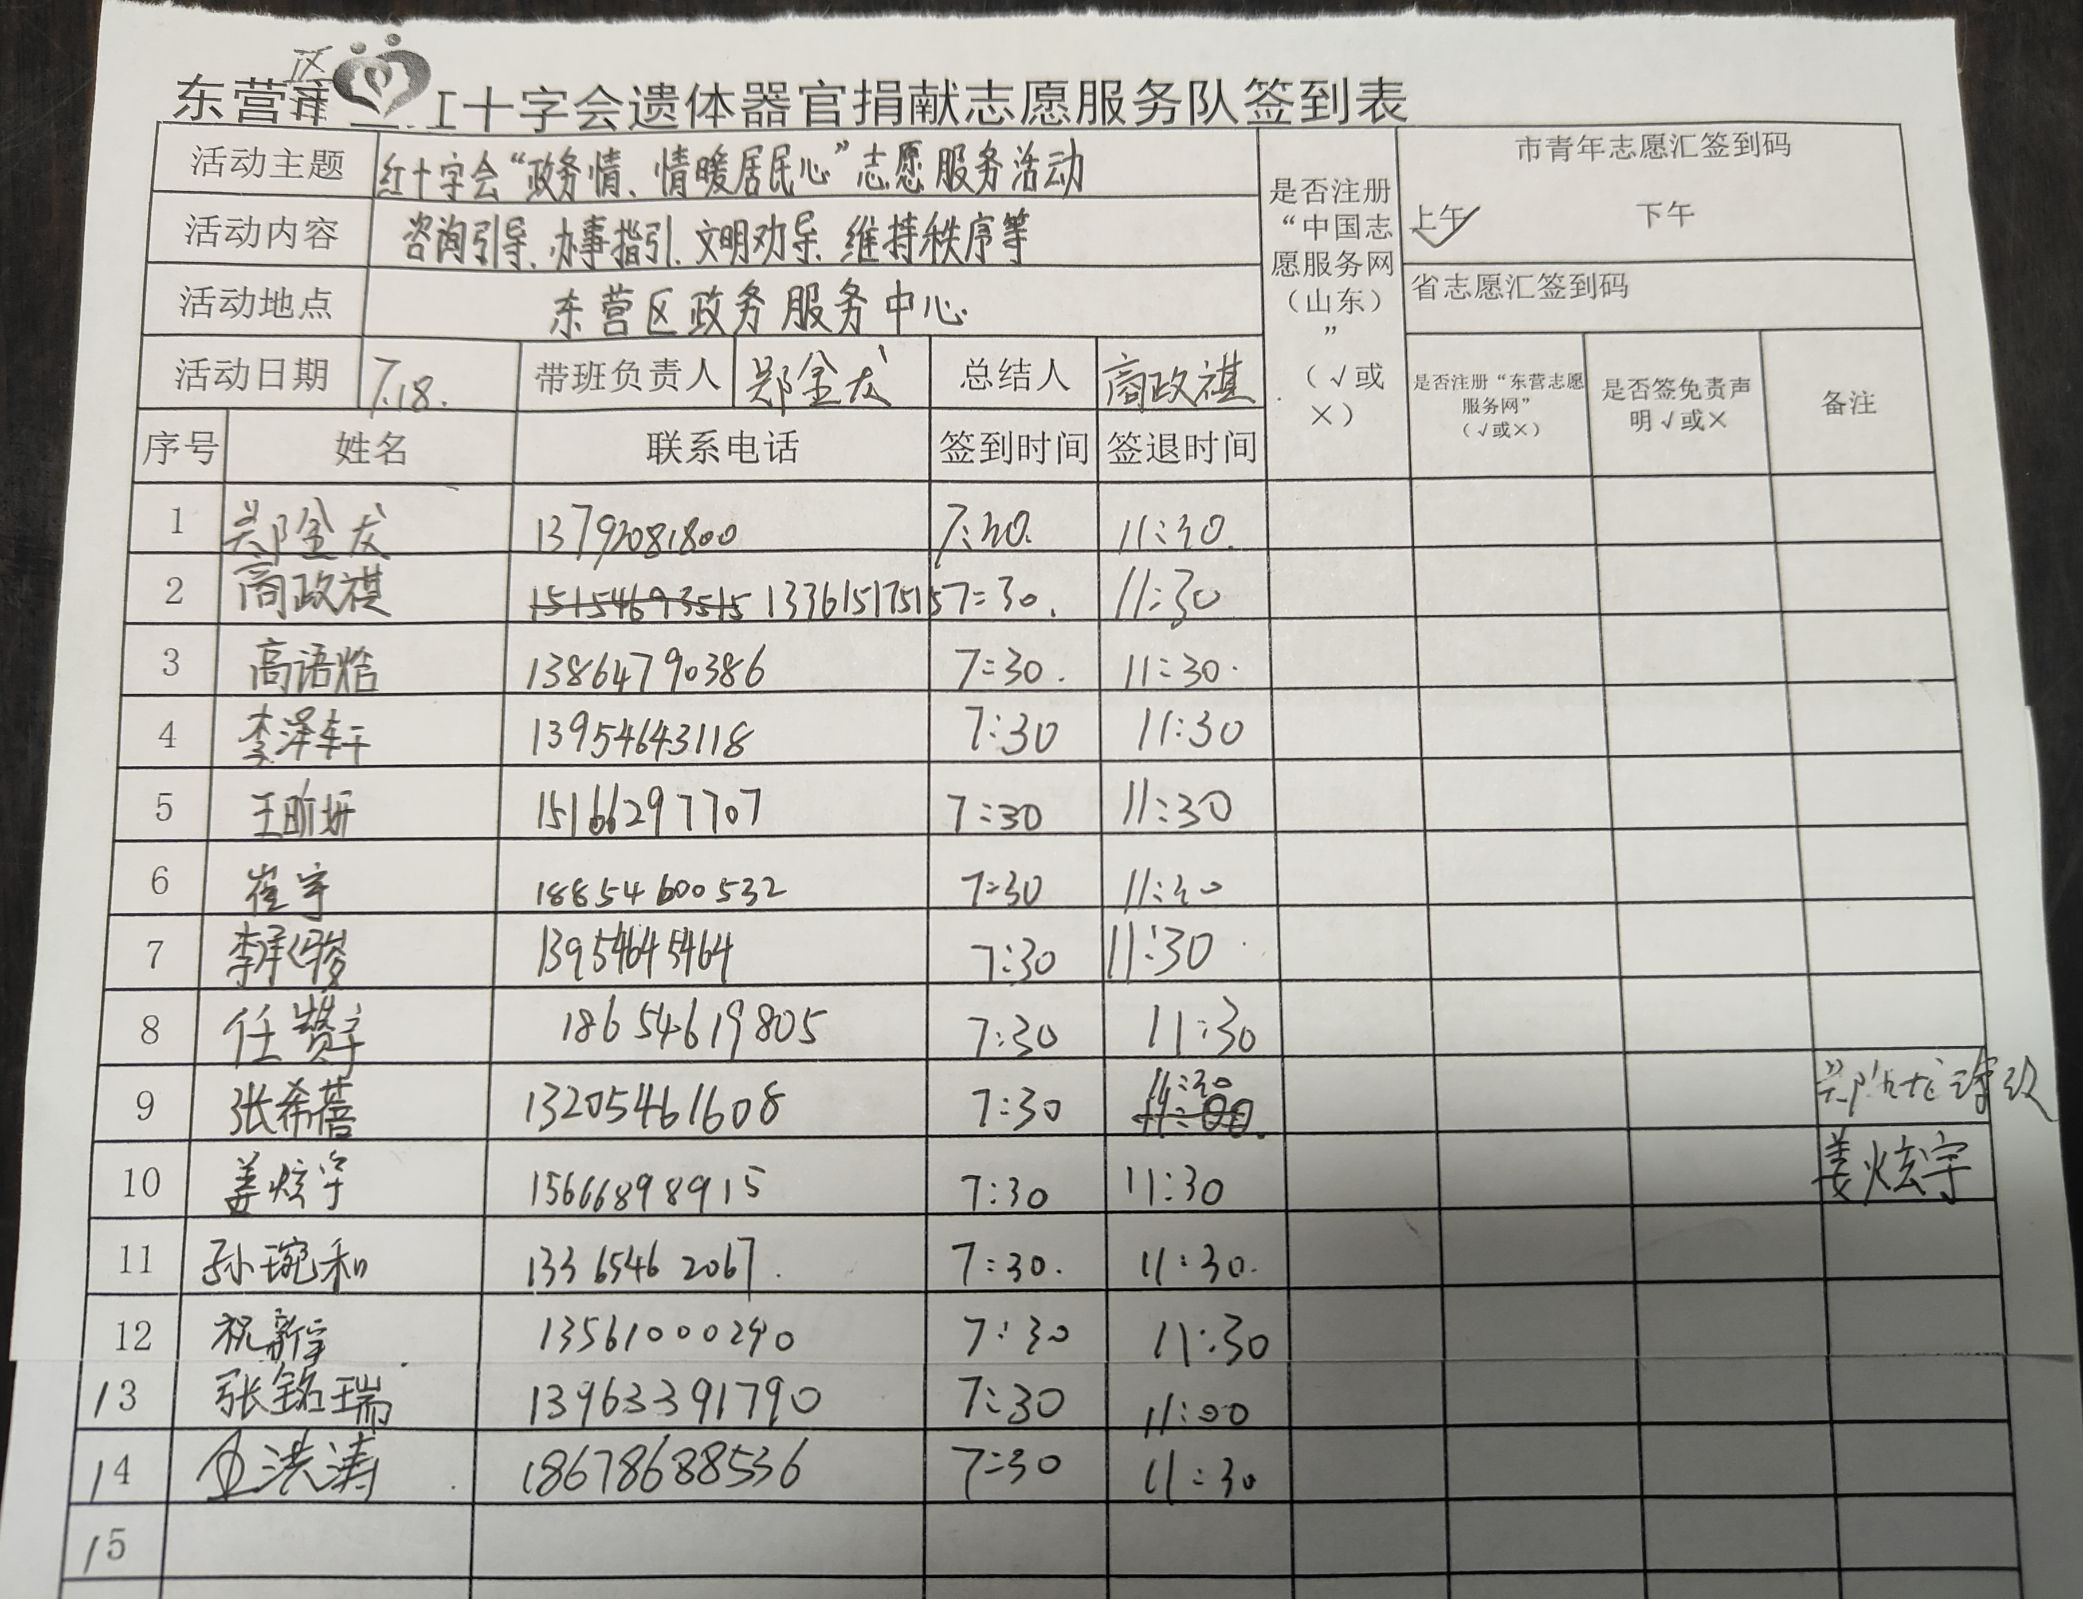 东营区红十字会遗体器官捐献志愿服务队签到表
活动主题 红十字会“政务情、情暖居民心”志愿服务活动
活动内容 咨询引导、办事指引、文明劝导、维持秩序等
活动地点 东营区政务服务中心
活动日期 7.18. 带班负责人 郑金龙 总结人 商政祺
是否注册
“中国志
愿服务网
（山东）
”
（√或
×）
市青年志愿汇签到码
上午✓ 下午
省志愿汇签到码
是否注册“东营志愿
服务网”
（√或×）
是否签免责声
明√或×
备注
序号 姓名 联系电话 签到时间 签退时间
1 郑金龙 13792081800 7:30. 11:30.
2 商政祺 15154693515 13361517515 7:30. 11:30
3 高语焓 13864790386 7:30. 11:30.
4 李泽轩 13954643118 7:30 11:30
5 王昕妍 15166297707 7:30 11:30
6 崔宇 18854600532 7:30 11:30
7 李承骏 13954645464 7:30 11:30
8 任赞宇 18654619805 7:30 11:30
9 张希蓓 13205461608 7:30 11:30 11:00. 郑金龙
10 姜炫宇 15666898915 7:30 11:30 姜炫宇
11 孙琬和 13365462067. 7:30. 11:30.
12 祝新宇 13561000290 7:30 11:30
13 张铭瑞 13963391790 7:30 11:00
14 洪涛 18678688536 7:30 11:30
15